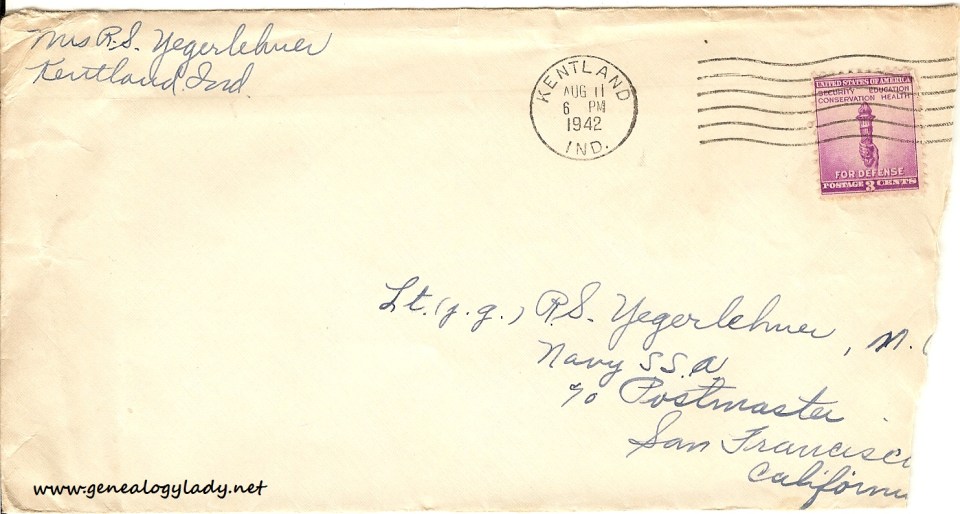 Mrs R.S. Yegerlehner
Kentland, Ind
KENTLAND
AUG 11
6 PM
1942
IND.
UNITED STATES OF AMERICA
SECURITY EDUCATION
CONSERVATION HEALTH
FOR DEFENSE
POSTAGE 3 CENTS
Lt. (j.g.) R.S. Yegerlehner, M.
Navy S.S.A
c/o Postmaster
San Francisc
Californi
www.genealogylady.net